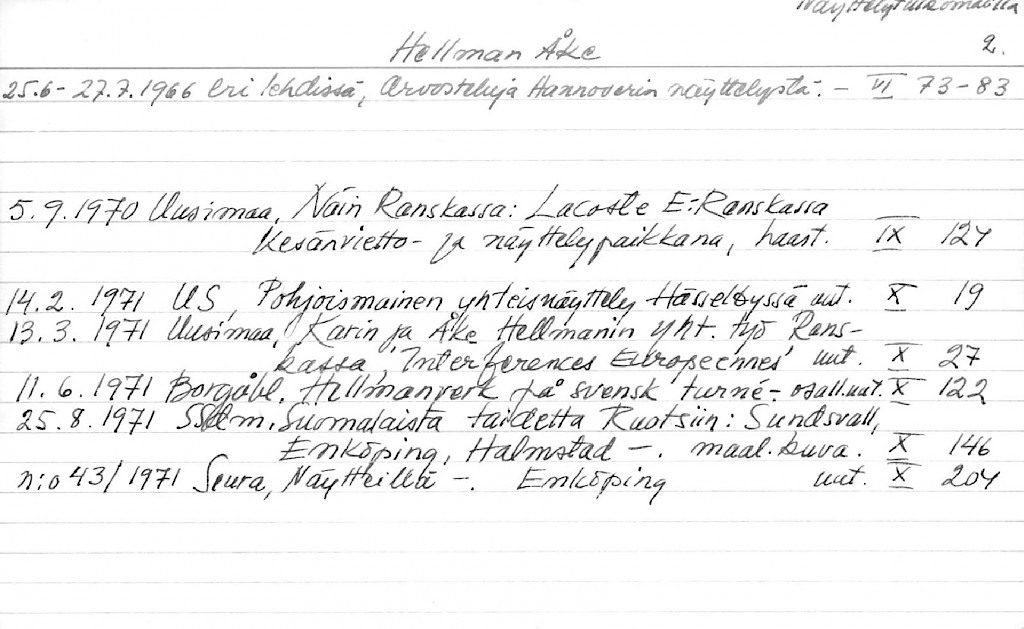 Näyttelyt ulkomailla
2.
Hellman Åke
25.6-27.7.1966 eri lehdissä, Arvosteluja Hannoverin näyttelystä. - VI 73-83
5.9.1970 Uusimaa, Näin Ranskassa: Lacoste E:Ranskassa
Kesänvietto- ja näyttelypaikkana, haast. IX 124
14.2. 1971 US, Pohjoismainen yhteisnäyttely Hässelbyssä uut. X 19
13.3. 1971 Uusimaa, Karin ja Åke Hellmanin yht. työ Rans-
kassa, 'Interferences Europeennes' uut. X 27
11.6. 1971 Borgåbl. Hellmanverk på svensk turné - osall.uut. X 122
25.8. 1971 Suomalaista taidetta Ruotsiin: Sundsvall,
Enköping, Halmstad -. maal.kuva. X 146
n:o 43/1971 Seura, Näytteillä -. Enköping uut. X 204